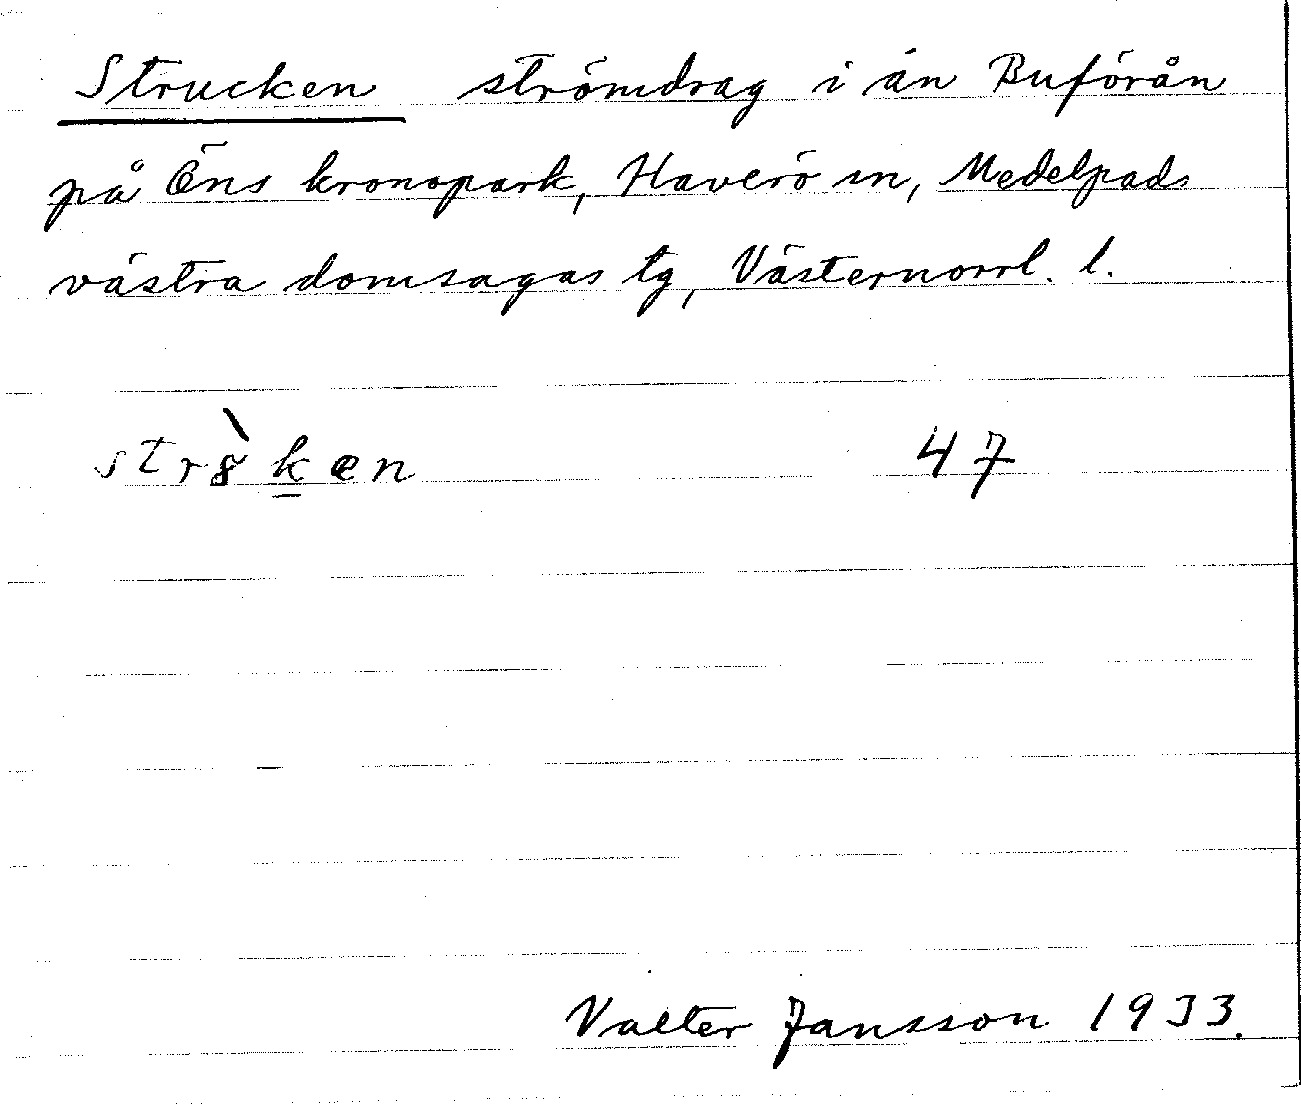 Strucken strömdrag i ån Buförån
på Öns kronopark, Haverö sn, Medelpads
västra domsagas tg, Västernorrl. l.
str8̀k̲en 47
Valter Jansson 1933.